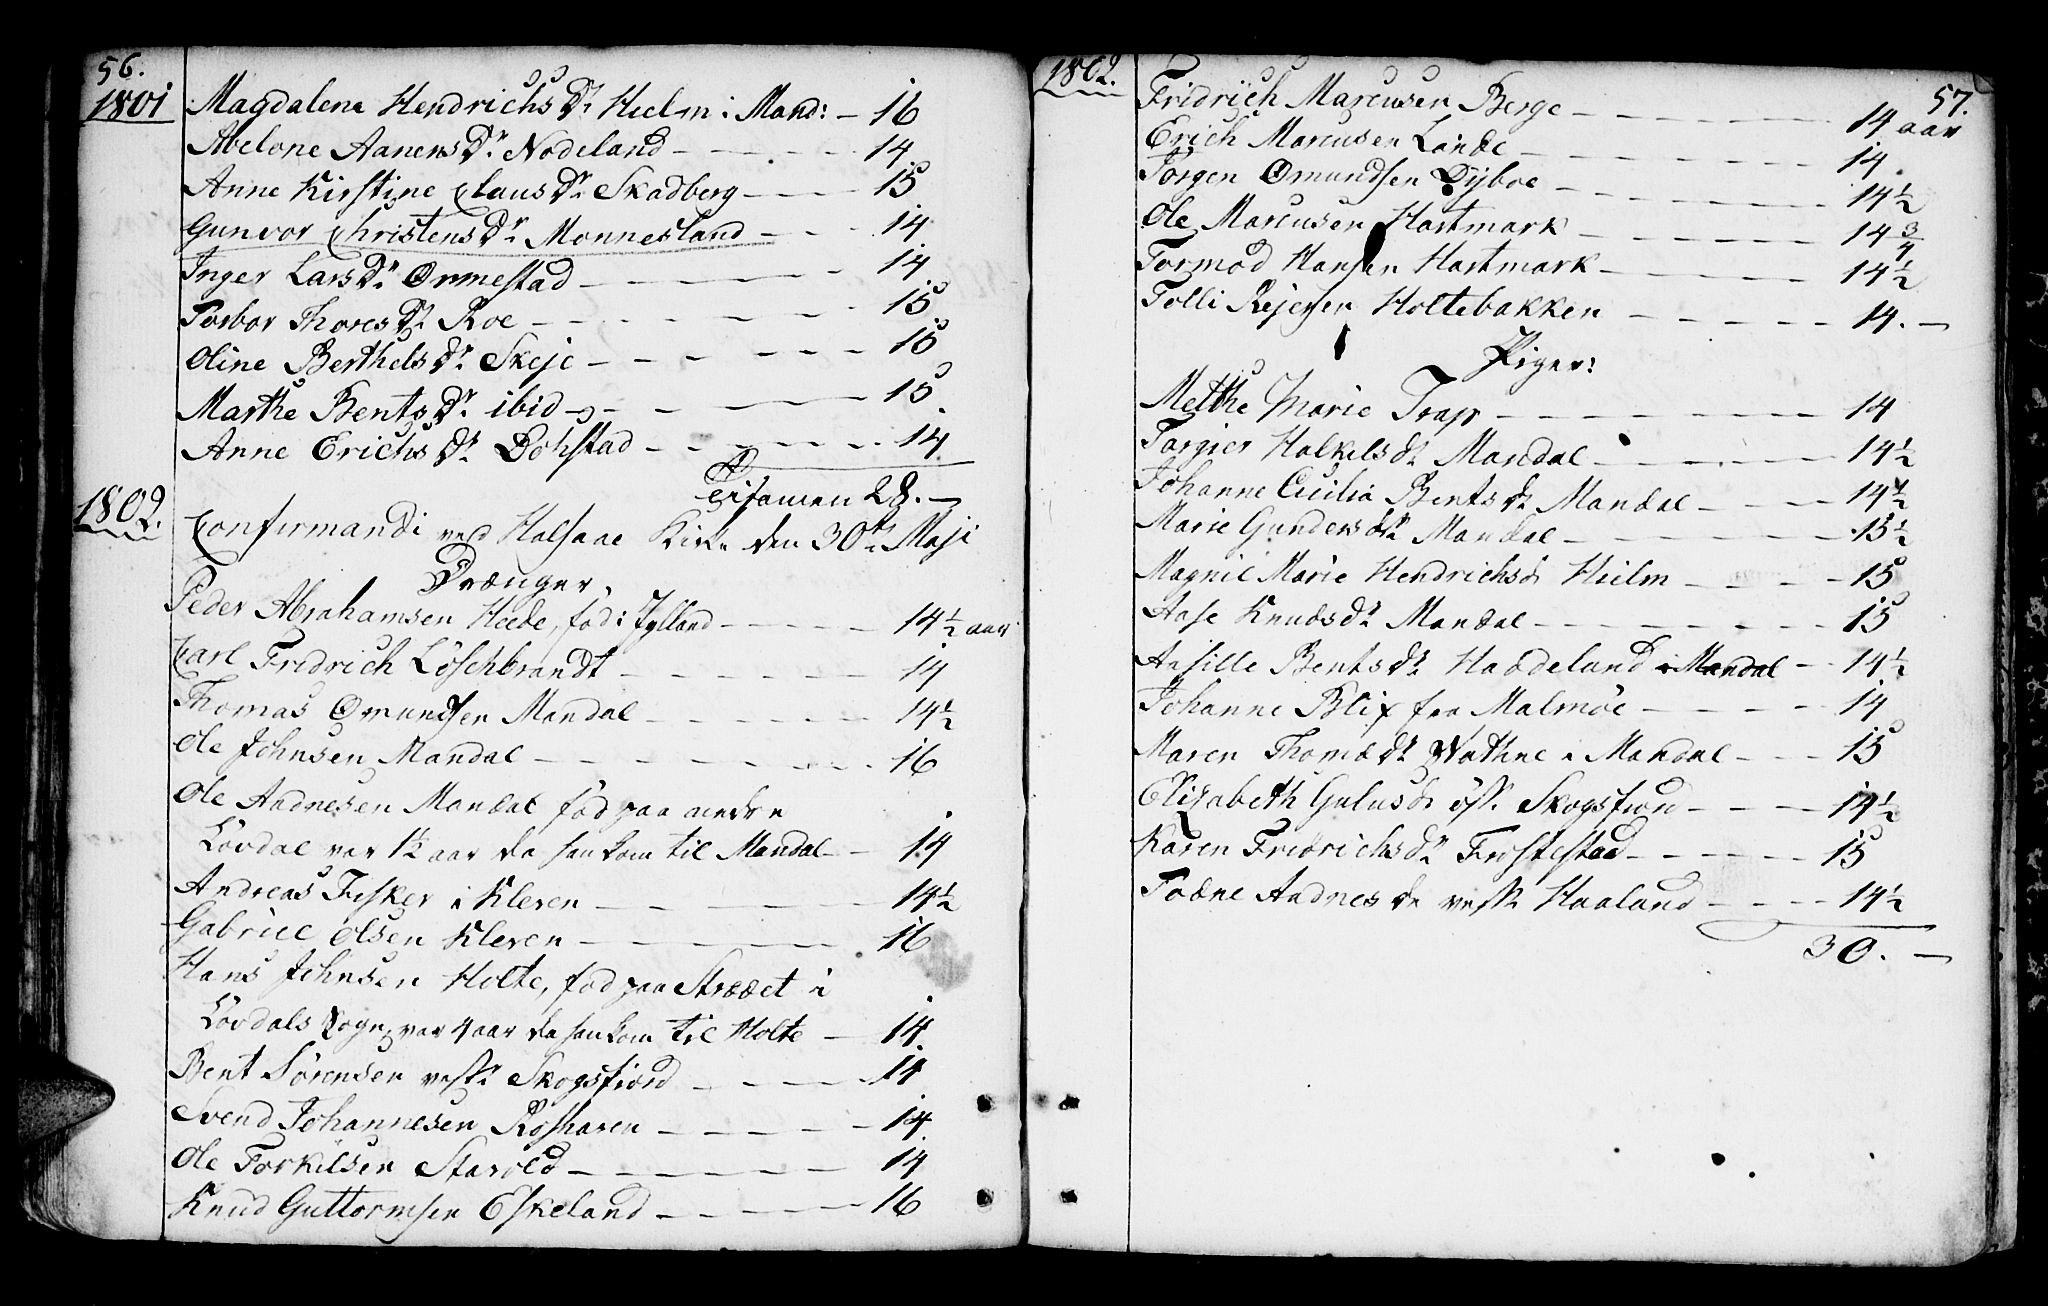 56.
1801
Magdalena Hendrichs Dr Hielm i Mand: — 16
Abelone Aanens Dr Nodeland — 14
Anne Kirstine Claus Dr Skadberg — 15
Gunvor Christens Dr Monnesland — 14
Inger Lars Dr Ormestad — 14
Torbor Thores Dr Roe — 15
Oline Berthels Dr Skeje — 16
Marthe Bents Dr ibid — 15
Anne Erichs Dr Dohstad — 14
Tilsamen 28. —
1802.
Confirmandi ved Halsaae Kirke den 30te Maji
Drænger.
Peder Abrahamsen Heede, fød i Jylland — 14 1/2 aar
Carl Fridrich Löschbrandt — 14
Thomas Omundsen Mandal — 14 1/2
Ole Johnsen Mandal — 16
Ole Aadnesen Mandal fød paa nedre
Lövdal var 1 1/2 aar da han kom til Mandal — 14
Andreas Fisker i Kleven — 14 1/2
Gabriel Olsen Kleven — 16
Hans Johnsen Holte, fød paa Strædet i
Lövdals Sogn, var 4 aar da han kom til Holte — 14
Bent Sörensen vestr Skogsfiord — 14
Svend Johannesen Rosharen — 14
Ole Torkilsen Starold — 14
Knud Guttormsen Eskeland — 16
1802.
57.
Fridrich Marcusen Berge — 14 aar
Erich Marcusen Lande — 14
Jörgen Omundsen Dyboe — 14 1/2
Ole Marcusen Hartmark — 14 3/4
Tormod Hansen Hartmark — 14 1/2
Tolli Rejersen Holtebakken — 14. —
Piger:
Metthe Marie Trap — 14
Targier Halkels dr Mandal — 14 1/2
Johanne Cicilia Bents dr Mandal — 14 1/2
Marie Gunders dr Mandal — 15 1/2
Magnil Marie Hendrichs d Hielm — 15
Aase Knuds Dr Mandal — 15
Assille Bents Dr Haadeland i Mandal — 14 1/2
Johanne Blix fra Malmöe — 14
Maren Thomæ Dr Vathne i Mandal — 15
Elisabeth Gulus d öst. Skogsfiord — 14 1/2
Karen Fridrichs dr Frostestad — 15
Todne Aadnes dr vestr Haaland — 14 1/2
30. —